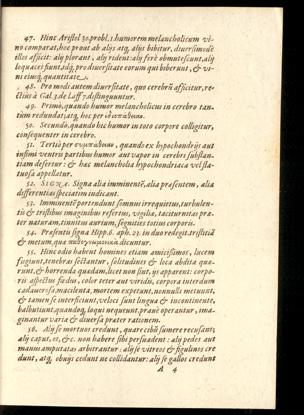 47. Hinc Aristot. 30. probl. 1. humorem melancholicum vi-
no comparat, hic prout ab alijs atq; alijs bibitur, diversimodè
illos afficit: alij plorant, alij rident: alij ferè obmutescunt, alij
loquaces fiunt, idq; pro diversitate eorum qui biberunt, & vi-
ni eiusq; quantitate.
48. Pro modi autem diversitate, quo cerebrũ afficitur, re-
ctius à Gal. 3. de Loc. aff. distinguuntur.
49. Primò, quando humor melancholicus in cerebro tan-
tùm redundat; atq; hic per ἰδιοπάθειαν.
50. Secundò, quando hic humor in toto corpore colligitur,
consequenter in cerebro.
51. Tertiò per συμπάθειαν, quando ex hypochondrijs aut
infimi ventris partibus humor aut vapor in cerebri substan-
tiam defertur: & hæc melancholia hypochondriaca vel fla-
tuosa appellatur.
52. SIGNA. Signa alia imminentẽ, alia præsentem, alia
differentias speciatim indicant.
53. Imminentẽ portendunt somni irrequieti, turbulen-
ti & tristibus imaginibus referti, vigiliæ, taciturnitas præ-
ter naturam, tinnitus aurium, segnities totius corporis.
54. Præsentis signa Hipp. 6. aph. 23. in duo redegit, tristitiã
& metum, quæ dicuntur.
55. Hinc odio habent homines etiam amicissimos, lucem
fugiunt, tenebras sectantur, solitudines & loca abdita quæ-
runt, & horrenda quædam, licet non sint, ijs apparent: corpo-
ris aspectus fœdus, color teter aut viridis, corpora interdum
cadaverosa macilenta, mortem expetunt, nonnulli metuunt,
& tamen se interficiunt, veloci sunt lingua & incontinente,
balbutiunt, quandoq; loqui nequeunt pravè operantur, ima-
ginantur varia & diversa præter rationem.
56. Alij se mortuos credunt, quare cibũ sumere recusant;
alij caput, os, &c. non habere sibi persuadent: alij pedes aut
manus amputatas arbitrantur: alij se vitreos & figulinos cre
dunt, atq; obvijs cedunt ne collidantur: alij se gallos credunt
A 4